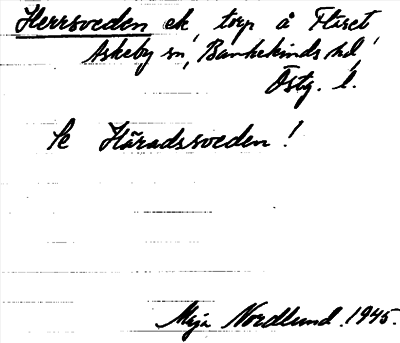 Herrsveden ek, torp å Fliset
Askeby sn, Bankekinds hd,
Östg. l.
Se Häradssveden!
Maja Nordlund. 1945.